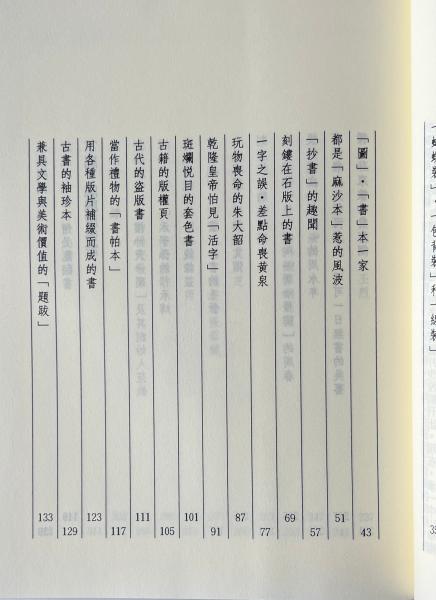 「圖」・「書」本一家 43
都是「麻沙本」惹的風波 51
「抄書」的趣聞 57
刻鏤在石版上的書 69
一字之誤・差點命喪黃泉 77
玩物喪命的朱大韶 87
乾隆皇帝怕見「活字」 91
斑斕悅目的套色書 101
古籍的版權頁 105
古代的盜版書 111
當作禮物的「書帕本」 117
用各種版片補綴而成的書 123
古書的袖珍本 129
兼具文學與美術價值的「題跋」 133